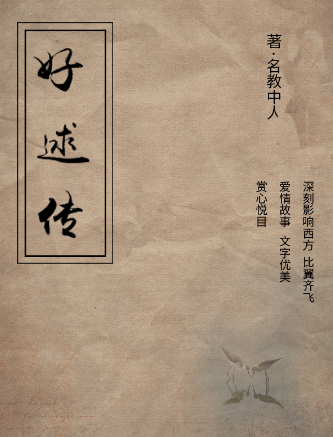 好逑传
著·名教中人
深刻影响西方 比翼齐飞
爱情故事 文字优美
赏心悦目